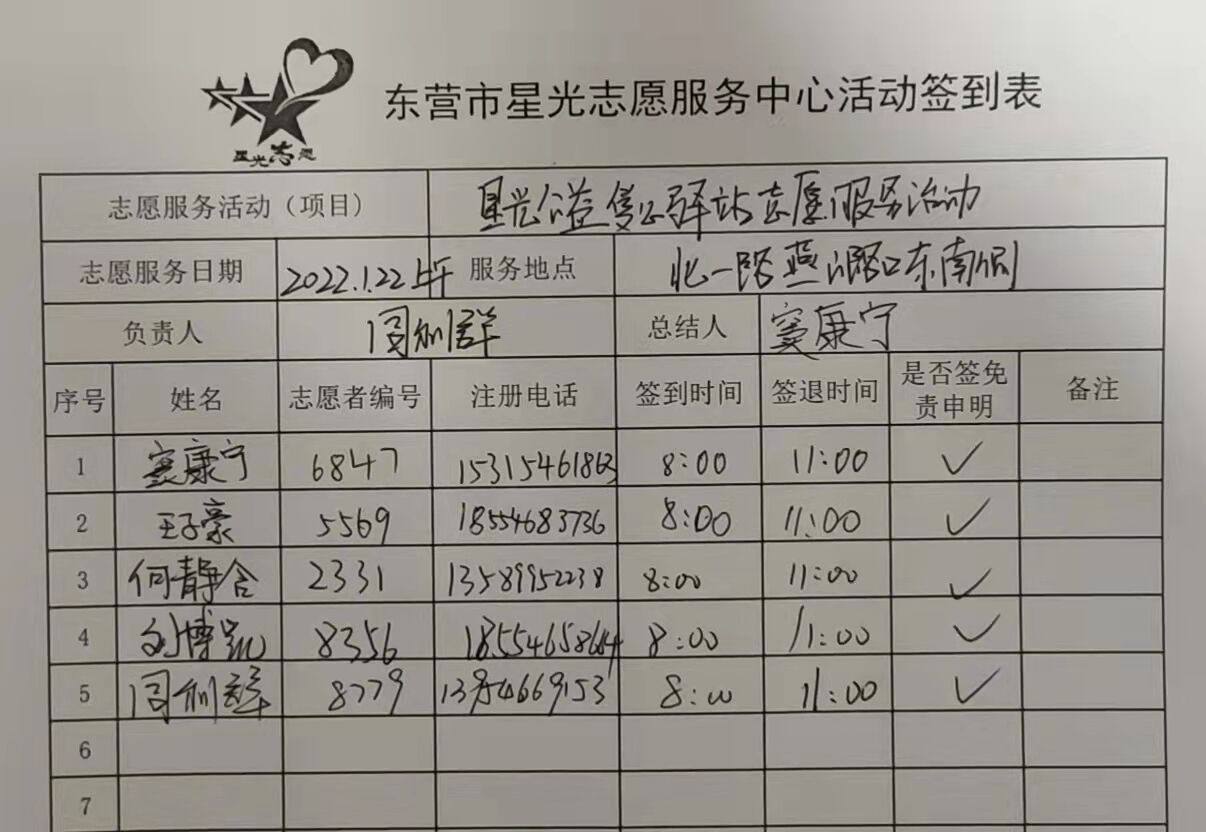 星光志愿
东营市星光志愿服务中心活动签到表
志愿服务活动（项目） 星光公益爱心驿站志愿服务活动
志愿服务日期 2022.1.22上午 服务地点 北一路燕山路口东南侧
负责人 周利群 总结人 窦康宁
序号 姓名 志愿者编号 注册电话 签到时间 签退时间 是否签免责申明 备注
1 窦康宁 6847 15315461863 8:00 11:00 ✓
2 王子豪 5569 18554683736 8:00 11:00 ✓
3 何静含 2331 13589952238 8:00 11:00 ✓
4 刘博凯 8356 18554658664 8:00 11:00 ✓
5 周利群 8779 13954669153 8:00 11:00 ✓
6
7